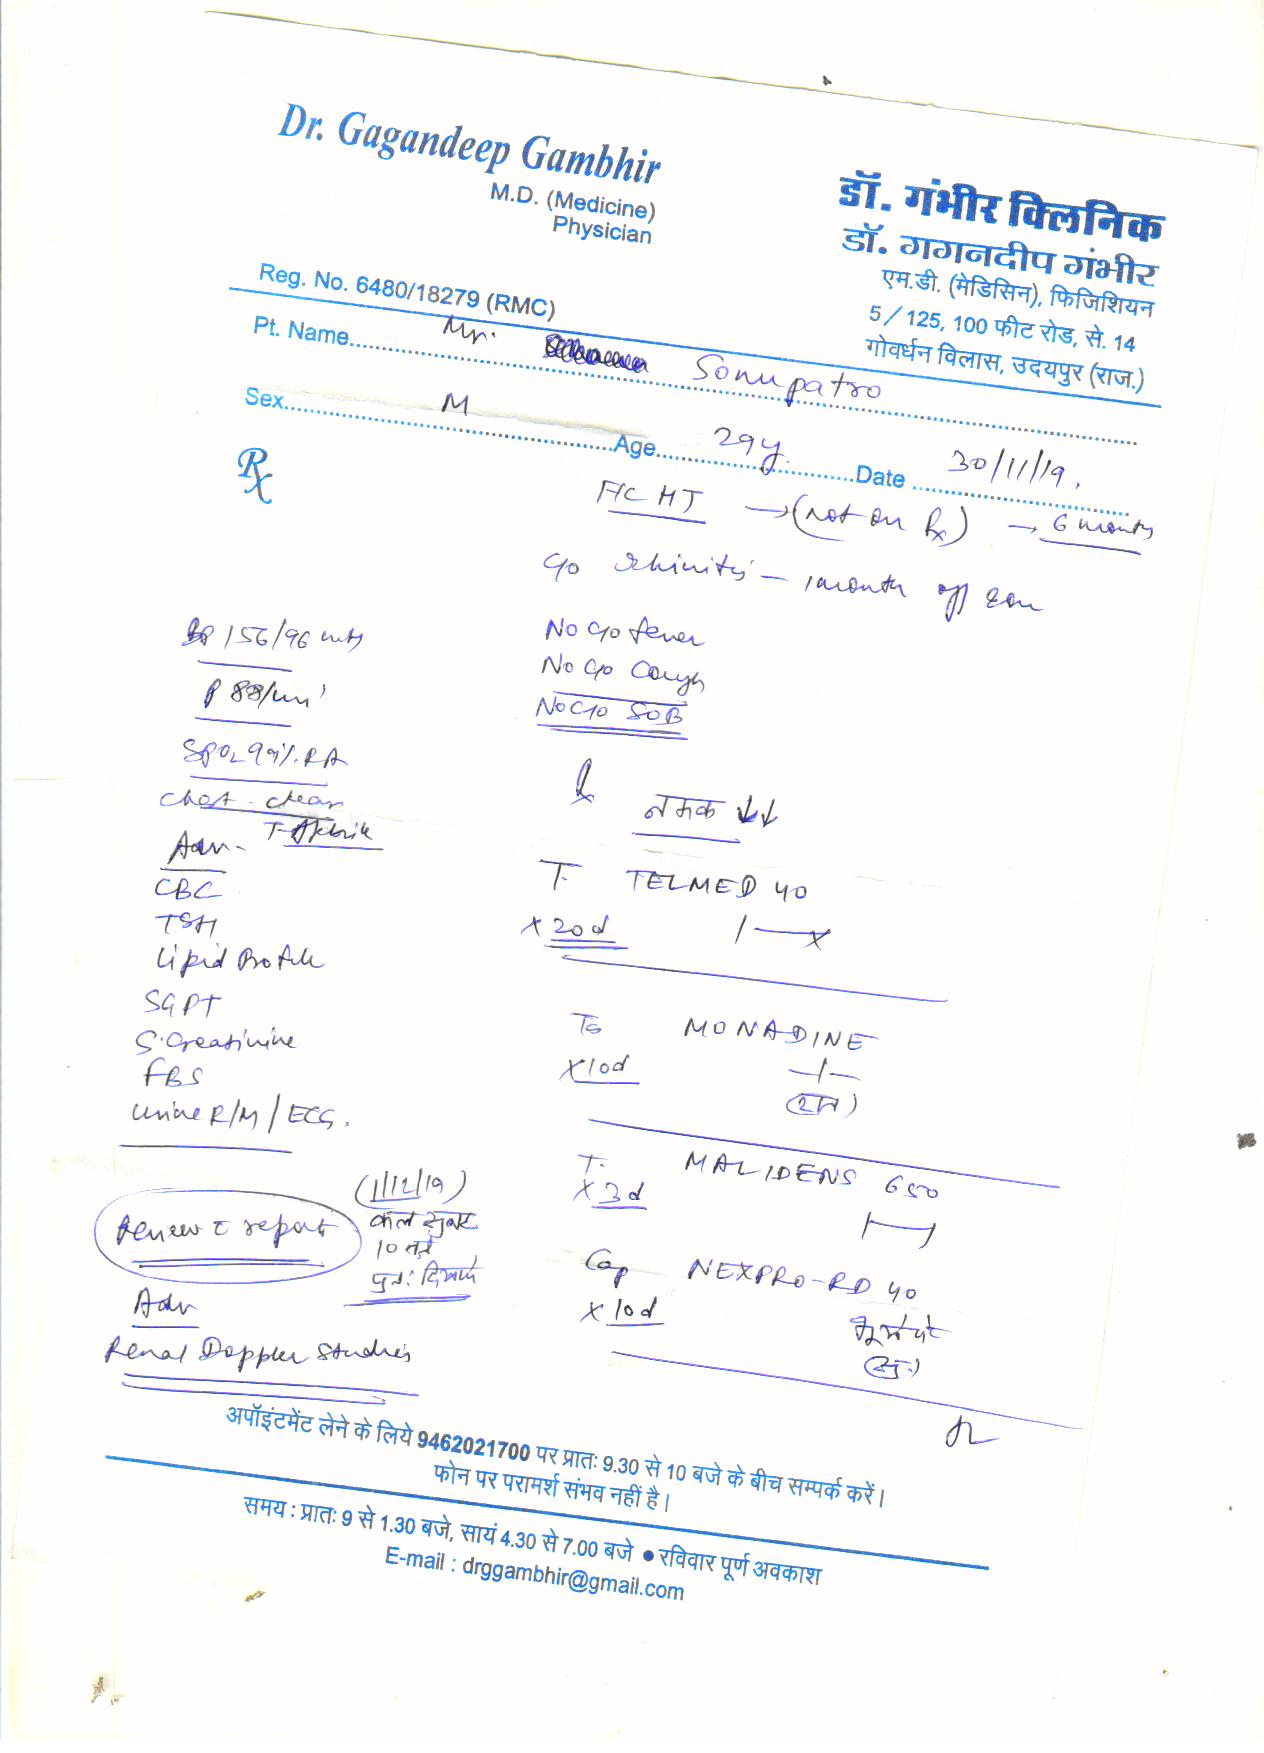 Dr. Gagandeep Gambhir
M.D. (Medicine)
Physician
Reg. No. 6480/18279 (RMC)
डॉ. गंभीर क्लिनिक
डॉ. गगनदीप गंभीर
एम.डी. (मेडिसिन), फिजिशियन
5/125, 100 फीट रोड, से. 14
गोवर्धन विलास, उदयपुर (राज.)
Pt. Name Mr. Sonupatro
Sex M Age 29y. Date 30/11/19.
Rx
HT → (not on Rx) → 6 months
c/o rhinitis - 1 month off
No c/o fever
No c/o Cough
No c/o SOB
BP 156/96
P 88/min
SPO2 99% RA
Chest - clear
T-Afebrile
Adv-
CBC
TSH
Lipid Profile
SGPT
S. Creatinine
FBS
Urine R/M / ECG.
Review c report
(1/12/19)
कल सुबह
10 बजे
पुनः दिखाएं
Adv
Renal Doppler Studies
नमक ↓↓
T. TELMED 40
x 20d 1—x
MONADINE
x 10d —1—
(रात)
T. MALIDENS 650
x 3d
Cap NEXPRO-RD 40
x 10d भूखे पेट
(सु.)
अपॉइंटमेंट लेने के लिये 9462021700 पर प्रातः 9.30 से 10 बजे के बीच सम्पर्क करें।
फोन पर परामर्श संभव नहीं है।
समय : प्रातः 9 से 1.30 बजे, सायं 4.30 से 7.00 बजे ● रविवार पूर्ण अवकाश
E-mail : drggambhir@gmail.com